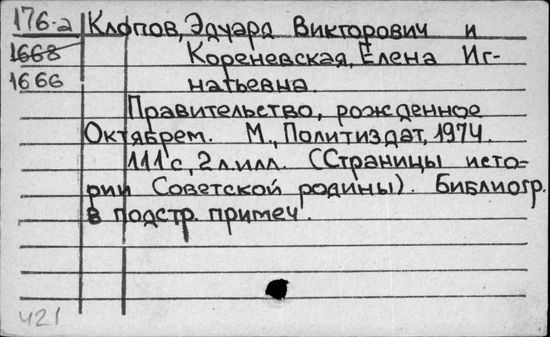 176-а Клопов, Эдуард Викторович и
1668 Кореневская, Елена Иг-
1666 натьевна.
Правительство, рожденное
Октябрем. М., Политиздат, 1974.
111 с, 2 л. илл. (Страницы исто-
рии Советской родины). Библиогр.
в подстр. примеч.
421